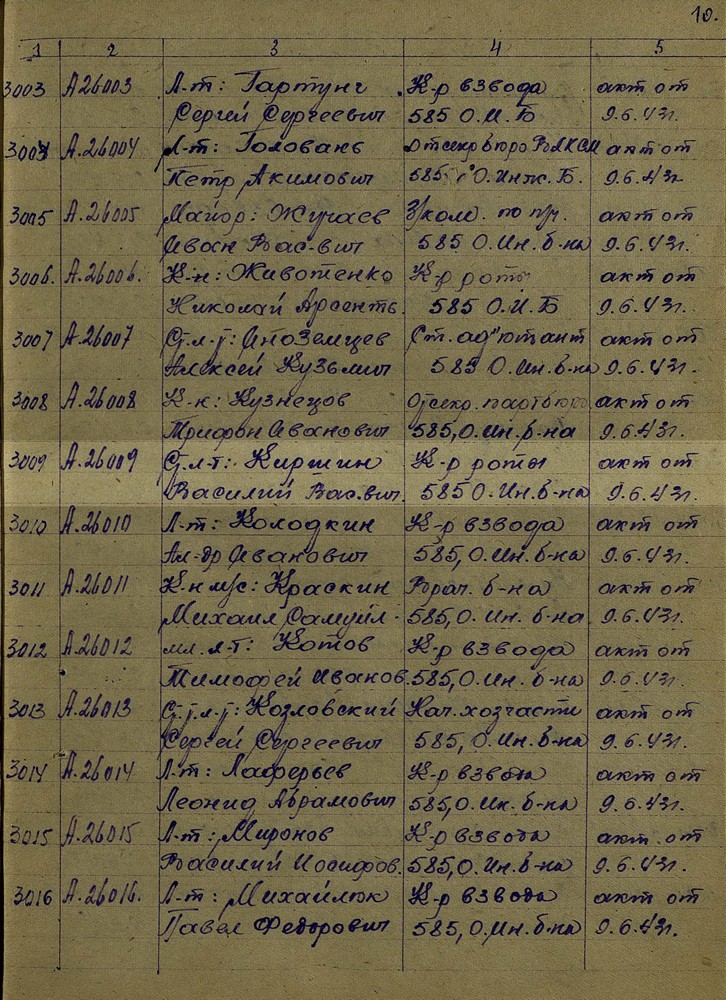 10.
1 2 3 4 5
3003 А26003 Л-т: Гартунг К-р взвода акт от
Сергей Сергеевич 585 О.И.Б 9.6.43г.
3004 А.26004 Л-т: Головань Отсекр бюро ВЛКСМ акт от
Петр Акимович 585 О.Инж.Б. 9.6.43г.
3005 А.26005 Майор: Жугаев З/ком. по п/ч. акт от
Иван Вас-вич 585 О.Ин.б-на 9.6.43г.
3006. А.26006. К-н: Животенко К-р роты акт от
Николай Арсентв. 585 О.И.Б 9.6.43г.
3007 А.26007 Ст.л-т: Иноземцев Ст. ад"ютант акт от
Алексей Кузьмич 585 О.Ин.б-на 9.6.43г.
3008 А.26008 К-н: Кузнецов Отсекр. партбюро акт от
Трифон Иванович 585, О.Ин.б-на 9.6.43г.
3009 А.26009 Ст.л-т: Киршин К-р роты акт от
Василий Вас.вич. 585 О.Ин.б-на 9.6.43г.
3010 А.26010 Л-т: Колодкин К-р взвода акт от
Ал-др Иванович 585, О.Ин.б-на 9.6.43г.
3011 А.26011 К-н м/с: Краскин Врач. б-на акт от
Михаил Самуил- 585, О.Ин.б-на 9.6.43г.
3012 А.26012 мл. л-т: Котов К-р взвода акт от
Тимофей Иванов. 585, О.Ин.б-на 9.6.43г.
3013 А.26013 Ст.л-т: Козловский Нач.хозчасти акт от
Сергей Сергеевич 585, О.Ин.б-на 9.6.43г.
3014 А.26014 Л-т: Лаферьев К-р взвода акт от
Леонид Абрамович 585, О.Ин.б-на 9.6.43г.
3015 А.26015 Л-т: Миронов К-р взвода акт от
Василий Иосифов. 585, О.Ин.б-на 9.6.43г.
3016 А.26016. Л-т: Михайлюк К-р взвода акт от
Павел Федорович 585, О.Ин.б-на 9.6.43г.